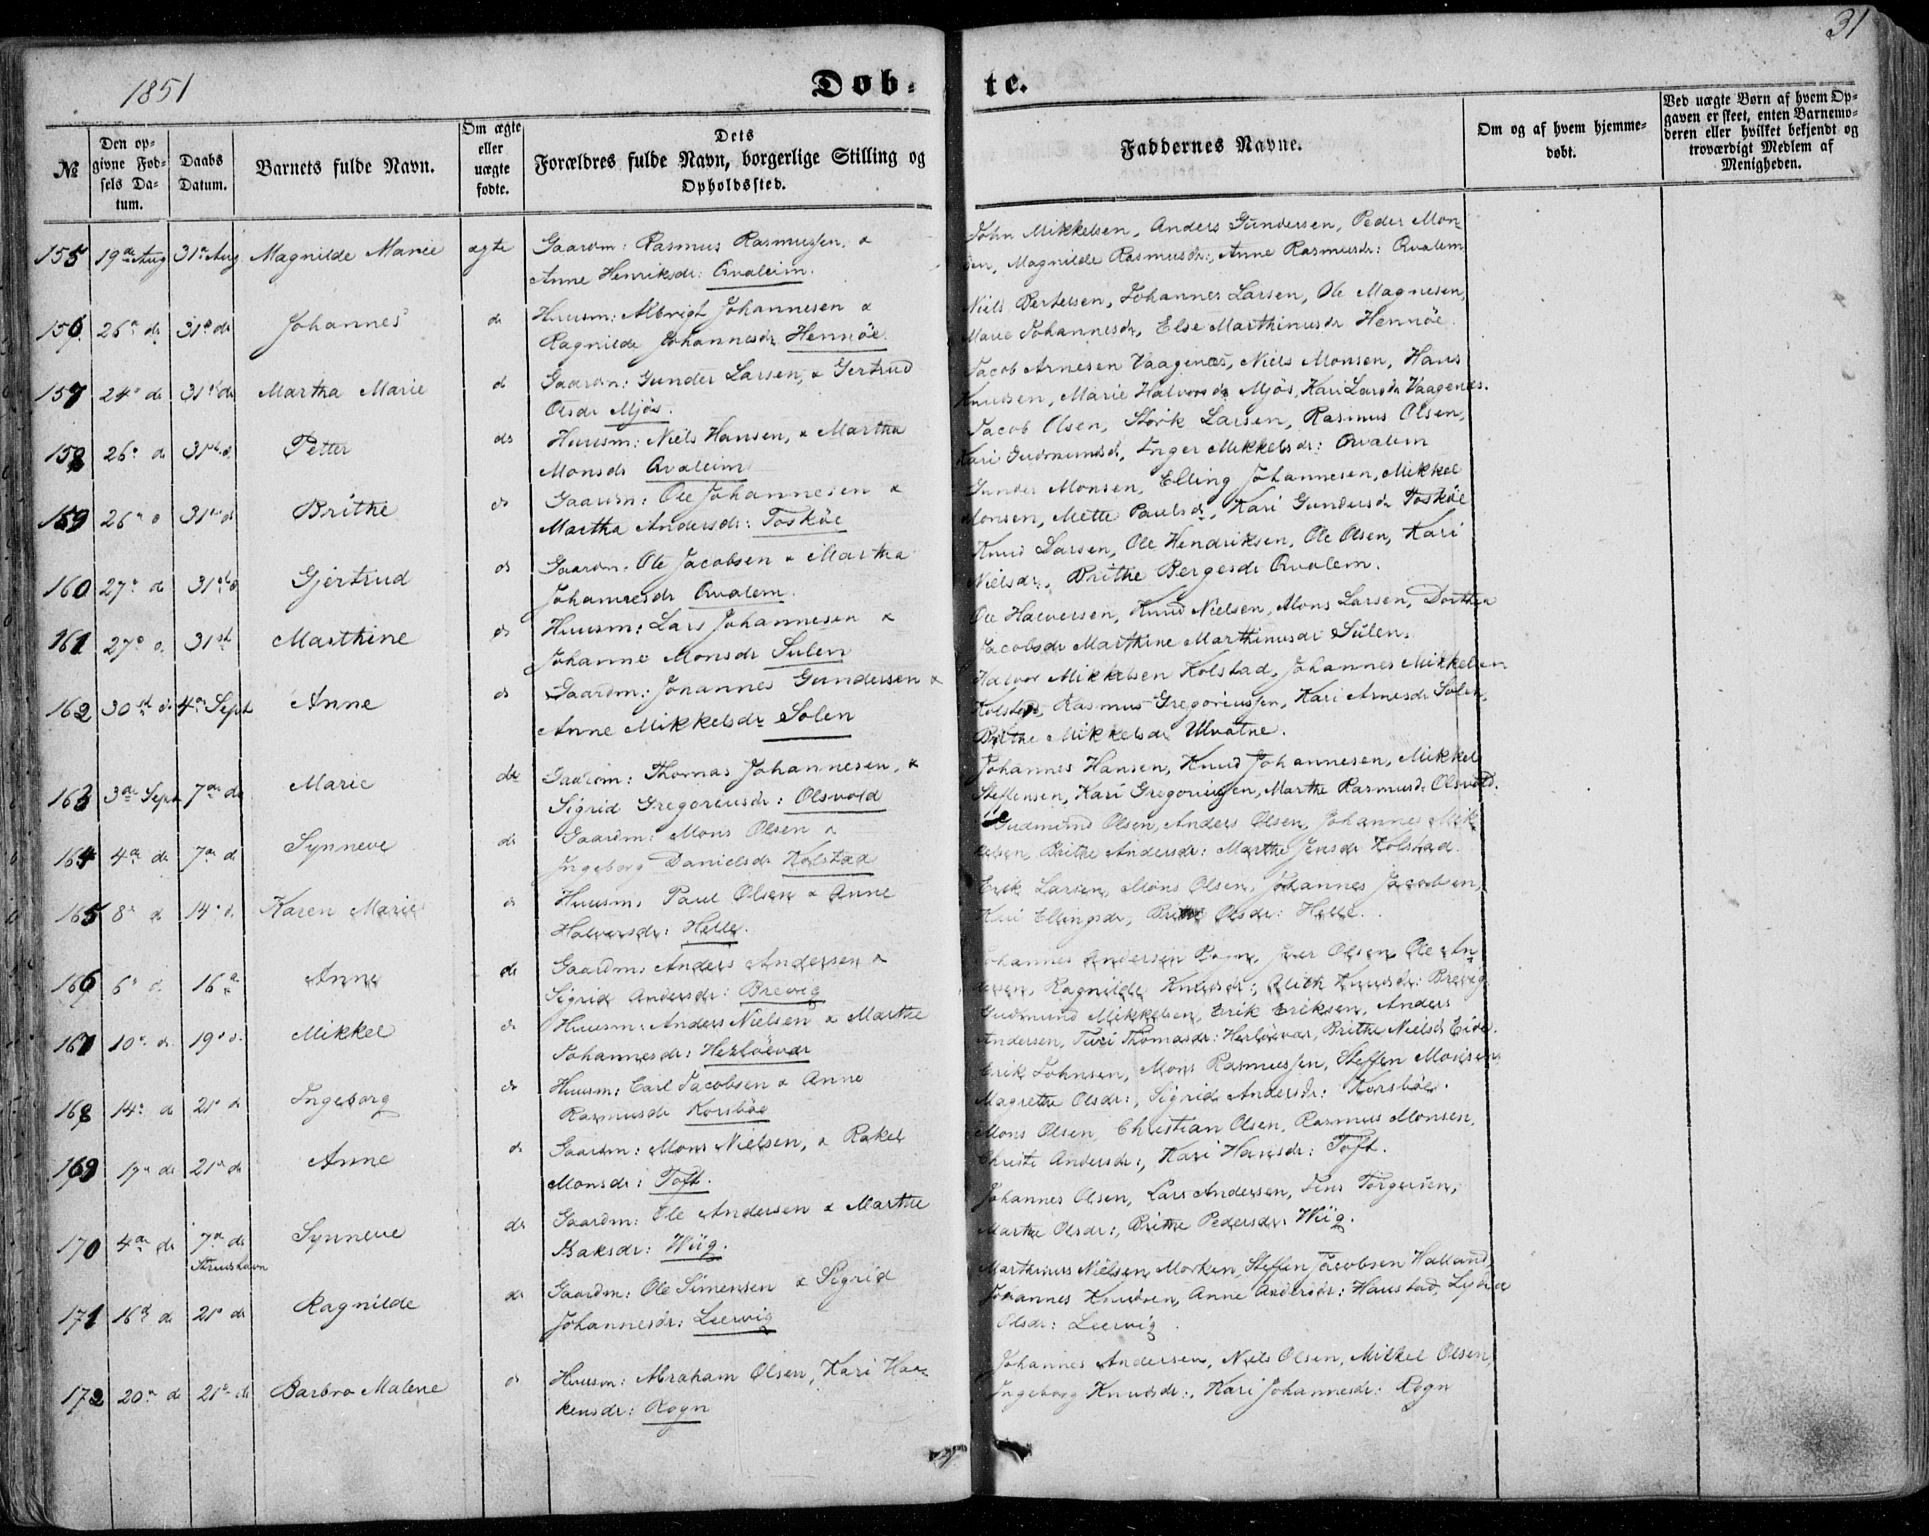 31
1851
Døb-
te.
№
Den op-
givne Fød-
sels Da-
tum.
Daabs
Datum.
Barnets fulde Navn.
Om ægte
eller
uægte
fødte.
Dets
Forældres fulde Navn, borgerlige Stilling og
Opholdssted.
Faddernes Navne.
Om og af hvem hjemme-
døbt.
Ved uægte Børn af hvem Op-
gaven er skeet, enten Barnemo-
deren eller hvilket bekjendt og
troværdigt Medlem af
Menigheden.
155 19de Aug 31te Aug Magnilde Marie ægte Gaardm: Rasmus Rasmussen, &
Anne Henriksdr: Qvaleim.
John Mikkelsen, Anders Gundersen, Peder Mon-
sen, Magnilde Rasmusdr:, Anne Rasmusdr: Qvalem
156 26 do 31 do Johannes do Huusm: Albrigt Johannesen &
Ragnilde Johannesdr Hennöe.
Niels Bertelsen, Johannes Larsen, Ole Magnesen,
Marie Johannesdr, Else Marthinusdr Hennöe.
157 24 do 31 do Martha Marie d Gaardm: Gunder Larsen, & Gertrud
Olsdr Mjös.
Jacob Arnesen Vaagenes, Niels Monsen, Hans
Knudsen, Marie Halvorsdr Mjös, Kari Larsdr Vaagenes.
158 26 do 31 d. Petter do Huusm: Niels Hansen, & Martha
Monsdr Qvaleim
Jacob Olsen, Störk Larsen, Rasmus Olsen,
Kari Gudmundsd, Inger Mikkelsdr: Qvalem
159 26 d 31 d Brithe do Gaardm: Ole Johannesen &
Martha Andersdr: Tosköe
Gunder Monsen, Elling Johannesen, Mikkel
Monsen, Mette Paulsdr, Kari Gundersdr Tosköe
160 27 do 31 d Gjertrud do Gaardm: Ole Jacobsen & Martha
Johannesdr Qvalem.
Knud Larsen, Ole Hendriksen, Ole Olsen, Kari
Nielsdr, Brithe Bergesdr Qvalem.
161 27 d. 31st Marthine do Huusm: Lars Johannesen &
Johanne Monsdr Sulen
Ole Halversen, Knud Nielsen, Mons Larsen, Dorthea
Jacobsdr Marthine Marthinusdr Sulen.
162 30 d 4 Sept Anne do Gaardm: Johannes Gundersen &
Anne Mikkelsdr Solen
Halvor Mikkelsen Kolstad, Johannes Mikkelsen
Kolstad, Rasmus Gregoriussen, Kari Arnesdr Solen,
Brithe Mikkelsdr Ulvatne.
163 3de Sept 7de do Marie do Gaardm: Thomas Johannesen, &
Sigrid Gregoriusdr: Olsvold
Johannes Hansen, Knud Johannesen, Mikkel
Steffensen, Kari Gregoriusen, Marthe Rasmusdr Olsvold.
164 4de do 7de d Synneve do Gaardm: Mons Olsen &
Ingeborg Danielsdr Kolstad
Gudmund Olsen, Anders Olsen, Johannes Mik-
kelsen, Brithe Andersdr: Marthe Jensdr Kolstad.
165 8 d 14 d. Karen Marie d Huusm: Paul Olsen & Anne
Halversdr: Helle.
Erik Larsen, Mons Olsen, Johannes Jacobsen,
Kari Ellingsdr, Brithe Olsdr: Helle.
166 6 d. 16 Anne do Gaardm: Anders Andersen &
Sigrid Andersdr: Brevig
Johannes Andersen Rogn, Iver Olsen, Ole An-
dersen, Ragnilde Knudsdr:, Knudsdr: Brevig
167 10 d. 19 d. Mikkel d Huusm: Anders Nielsen & Marthe
Johannesdr: Herlöevær
Gudmund Mikkelsen, Erik Eriksen, Anders
Andersen, Turi Thomasdr: Herlöevær, Brithe Nielsdr Eide.
168 14 do 21 d Ingeborg do Huusm: Carl Jacobsen & Anne
Rasmusdr Korsböe
Erik Johnsen, Mons Rasmussen, Steffen Monsen
Magrethe Olsdr:, Sigrid Andersdr: Korsböe.
169 19 do 21 do Anne do Gaardm: Mons Nielsen, & Rakel
Monsdr: Toft.
Mons Olsen, Christian Olsen, Rasmus Monsen,
Christi Andersdr:, Kari Hansdr: Toft.
170 4de do 7de do Synneve do Gaardm: Ole Andersen & Marthe
Isaksdr: Wiig.
Johannes Olsen, Lars Andersen, Jens Torgersen,
Marthe Olsdr:, Brithe Pedersdr: Wiig.
171 16 do 21 do Ragnilde do Gaardm: Ole Simensen & Sigrid
Johannesdr: Leervig
Marthinus Nielsen Morken, Steffen Jacobsen Halland,
Johannes Knudsen, Anne Andersdr: Haustad, Lydia
Olsdr: Leervig.
172 20 d 21 do Barbro Malene do Huusm: Abraham Olsen, Kari Haa-
kensdr: Rogn
Johannes Andersen, Niels Olsen, Mikkel Olsen,
Ingeborg Knudsdr:, Kari Johannesdr: Rogn